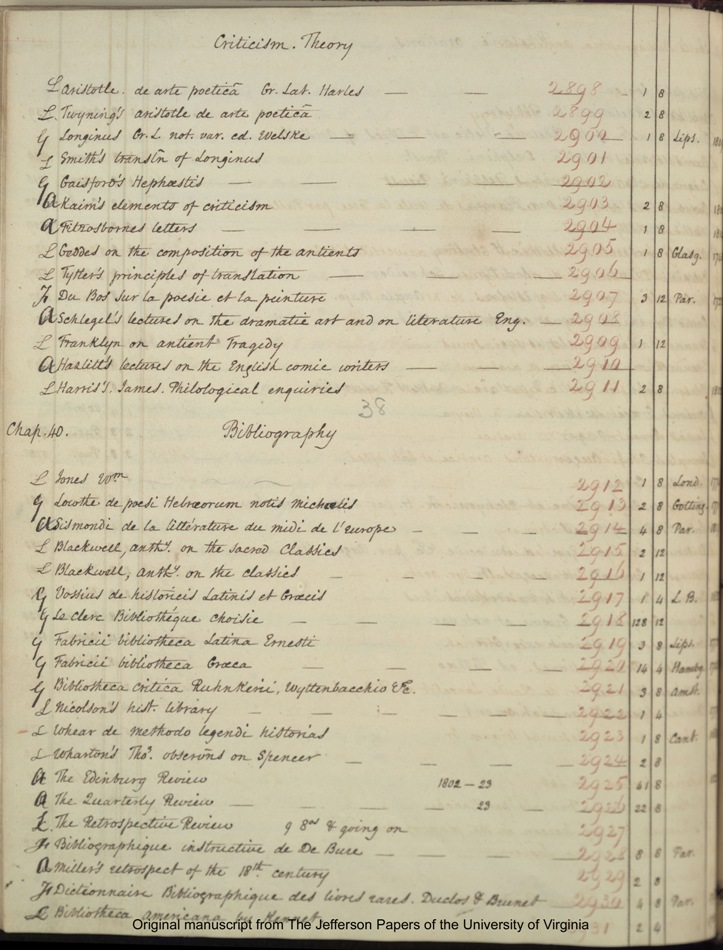 Criticism. Theory
L Aristotle. de arte poeticâ Gr. Lat. Harles — — 2898 1 8
L Twyning's aristotle de arte poeticâ 2899 2 8
G Longinus Gr. L. not. var. ed. Weiske — — — 2900 1 8 Lips.
L Smith's translñ of Longinus 2901
G Gaisford's Hephæstis — — — — 2902
A Kaim's elements of criticism 2903 2 8
A Fitzosbornes letters — — — — 2904 1 8
L Geddes on the composition of the antients 2905 1 8 Glasg.
L Tytler's principles of translation — — — 2906
Fr Du Bos sur la poesie et la peinture 2907 3 12 Par.
A Schlegel's lectures on the dramatic art and on literature Eng. — 2908
L Franklyn on antient Tragedy 2909 1 12
A Hazlitt's lectures on the English comic writers — — — 2910
L Harris's. James. Philological enquiries 2911 2 8
38
Chap. 40. Bibliography
L Jones Wm 2912 1 8 Lond.
G Lowthe de poesi Hebræorum notis michaelis 2913 2 8 Gotting.
A Sismondi de la littérature du midi de l'europe — — — 2914 4 8 Par.
L Blackwell, anthy. on the sacred Classics 2915 2 12
L Blackwell, anthy. on the classics — — — — 2916 1 12
G Vossius de historicis Latinis et Græcis 2917 1 4 L.B.
G Le Clerc Bibliothéque choisie — — — — 2918 128 12
G Fabricii bibliotheca Latina Ernesti 2919 3 8 Lips.
G Fabricii bibliotheca Græca — — — — 2920 14 4 Hambg.
G Bibliotheca critica Ruhnkenii, Wyttenbacchio &c. 2921 3 8 Amst.
L Nicolson's hist. library — — — — — 2922 1 4
L Whear de methodo legendi historias 2923 1 8 Cant.
L Wharton's Thos. observñs on Spencer — — — 2924 2 8
A The Edinburg Review 1802 – 23 2925 41 8
A The Quarterly Review — — 23 — 2926 22 8
L The Retrospective Review 9 8os & going on 2927
Fr Bibliographique instructive de De Bure — — — — 2928 8 8 Par.
A Miller's retrospect of the 18th century 2929 2 8
Fr Dictionnaire Bibliographique des livres rares. Duclos & Brunet 2930 4 8 Par.
L Bibliotheca americana by Kennet 2 4
Original manuscript from The Jefferson Papers of the University of Virginia